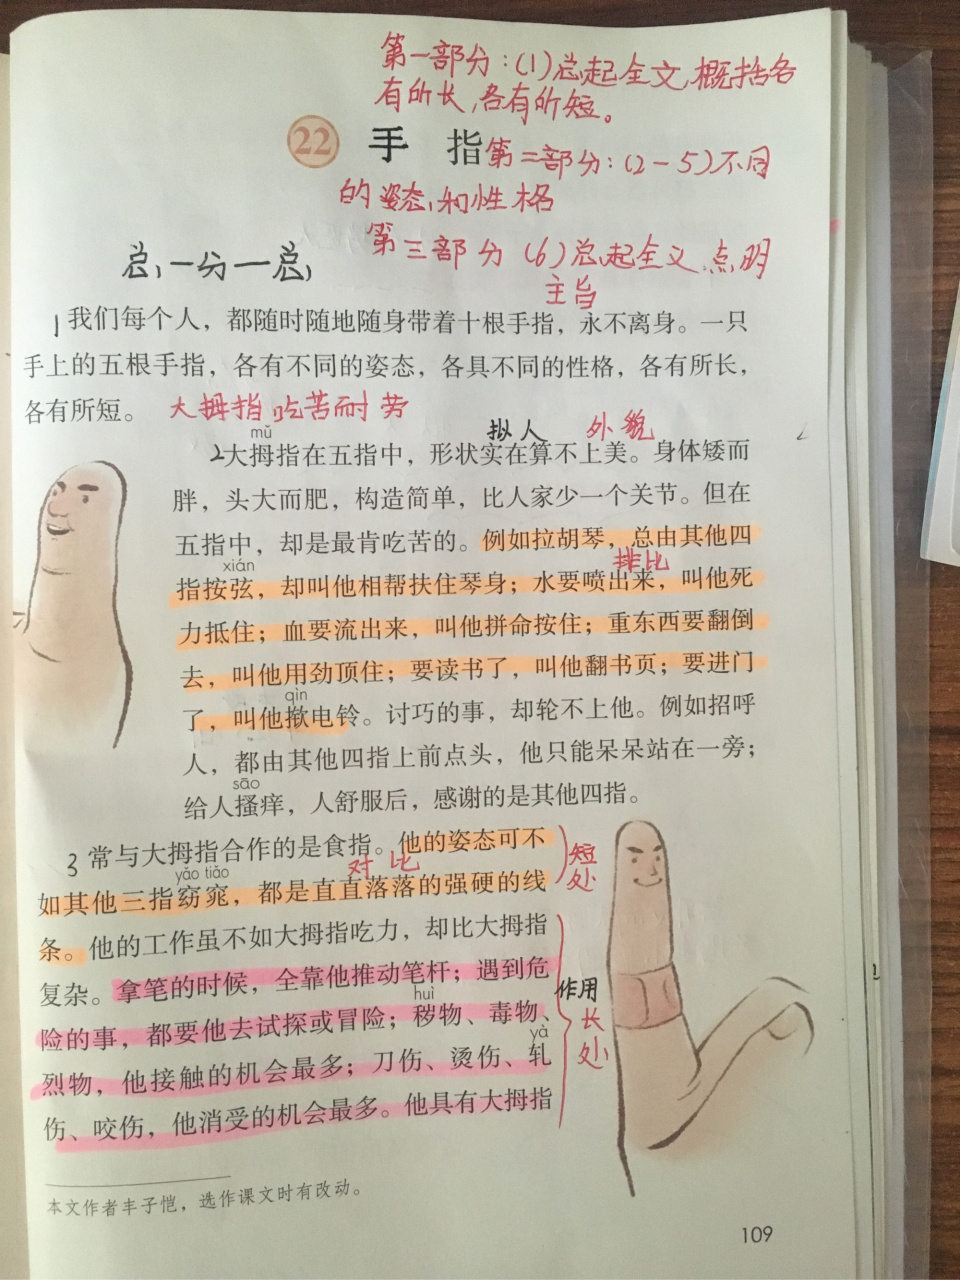 第一部分：(1)总起全文，概括各
有所长，各有所短。
22 手 指
第二部分：(2-5)不同
的姿态，和性格
第三部分 (6)总起全文，点明
主旨
总一分一总
1我们每个人，都随时随地随身带着十根手指，永不离身。一只
手上的五根手指，各有不同的姿态，各具不同的性格，各有所长，
各有所短。 大拇指吃苦耐劳
mǔ
拟人 外貌
2大拇指在五指中，形状实在算不上美。身体矮而
胖，头大而肥，构造简单，比人家少一个关节。但在
五指中，却是最肯吃苦的。例如拉胡琴，总由其他四
xián
排比
指按弦，却叫他相帮扶住琴身；水要喷出来，叫他死
力抵住；血要流出来，叫他拼命按住；重东西要翻倒
去，叫他用劲顶住；要读书了，叫他翻书页；要进门
qìn
了，叫他揿电铃。讨巧的事，却轮不上他。例如招呼
人，都由其他四指上前点头，他只能呆呆站在一旁；
sāo
给人搔痒，人舒服后，感谢的是其他四指。
3常与大拇指合作的是食指。他的姿态可不
对比
短
处
yǎo tiǎo
如其他三指窈窕，都是直直落落的强硬的线
条。他的工作虽不如大拇指吃力，却比大拇指
复杂。拿笔的时候，全靠他推动笔杆；遇到危
作用
长
处
huì
险的事，都要他去试探或冒险；秽物、毒物、
yà
烈物，他接触的机会最多；刀伤、烫伤、轧
伤、咬伤，他消受的机会最多。他具有大拇指
本文作者丰子恺，选作课文时有改动。
109